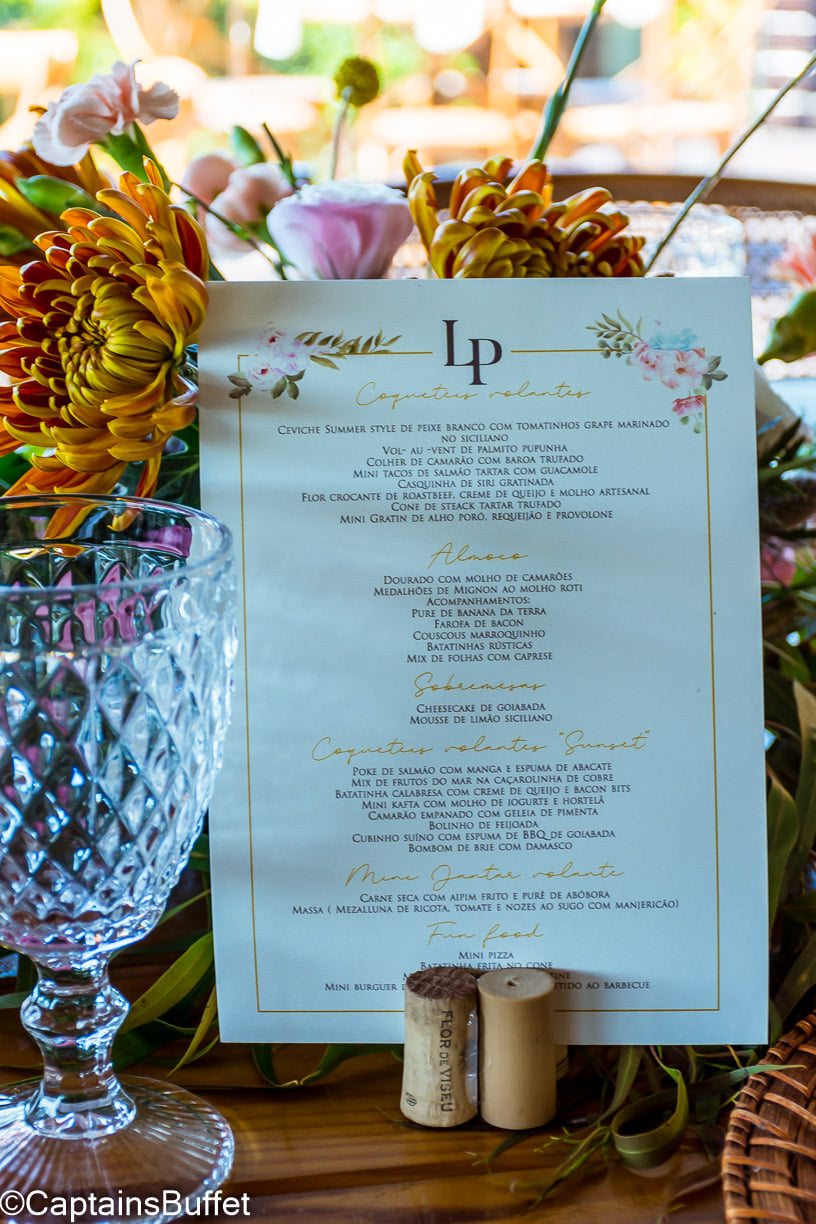 LP
Coqueteis volantes
Ceviche Summer style de peixe branco com tomatinhos grape marinado
no siciliano
Vol- au -vent de palmito pupunha
Colher de camarão com baroa trufado
Mini tacos de salmão tartar com guacamole
Casquinha de siri gratinada
Flor crocante de roastbeef, creme de queijo e molho artesanal
Cone de steack tartar trufado
Mini Gratin de alho poró, requeijão e provolone
Almoco
Dourado com molho de camarões
Medalhões de Mignon ao molho roti
Acompanhamentos:
Pure de banana da terra
Farofa de bacon
Couscous marroquinho
Batatinhas rústicas
Mix de folhas com caprese
Sobremesas
Cheesecake de goiabada
Mousse de limão siciliano
Coqueteis volantes "Sunset"
Poke de salmão com manga e espuma de abacate
Mix de frutos do mar na caçarolinha de cobre
Batatinha calabresa com creme de queijo e bacon bits
Mini kafta com molho de iogurte e hortelã
Camarão empanado com geleia de pimenta
Bolinho de feijoada
Cubinho suíno com espuma de BBQ de goiabada
Bombom de brie com damasco
Mini Jantar volante
Carne seca com aipim frito e purê de abóbora
Massa ( Mezalluna de ricota, tomate e nozes ao sugo com manjericão)
Fun food
Mini pizza
Batatinha frita no cone
Mini burguer ao barbecue
FLOR DE VISEU
©CaptainsBuffet